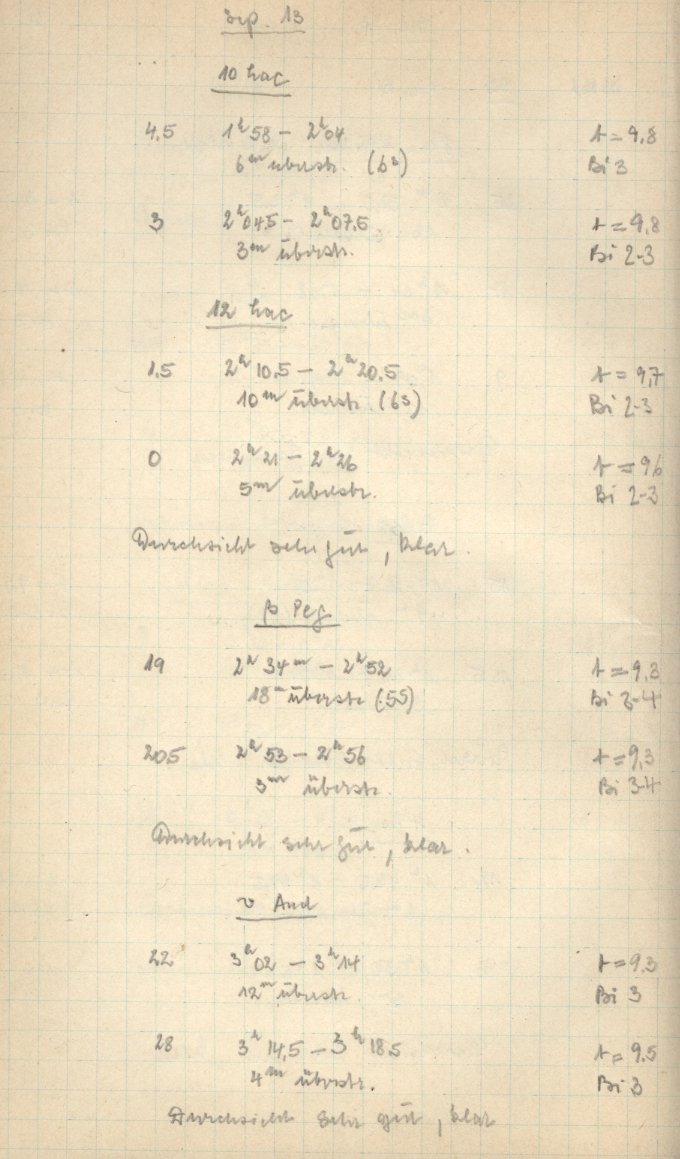 Sep. 13
10 Lac
4.5 1h58 – 2h04 t = 9,8
6m überstr. (6s) Bi 3
3 2h04.5 – 2h07.5 t = 9,8
3m überstr. Bi 2-3
12 Lac
1.5 2h10.5 – 2h20.5 t = 9,7
10m überstr. (6s) Bi 2-3
0 2h21 – 2h26 t = 96
5m überstr. Bi 2-3
Durchsicht sehr gut, klar.
β Peg
19 2h34m – 2h52 t = 9.3
18m überstr. (5s) Bi 3-4
20.5 2h53 – 2h56 t = 9,3
3m überstr. Bi 3-4
Durchsicht sehr gut, klar.
υ And
22 3h02 – 3h14 t = 9.3
12m überstr. Bi 3
28 3h14,5 – 3h18.5 t = 9.5
4m überstr. Bi 3
Durchsicht sehr gut, klar